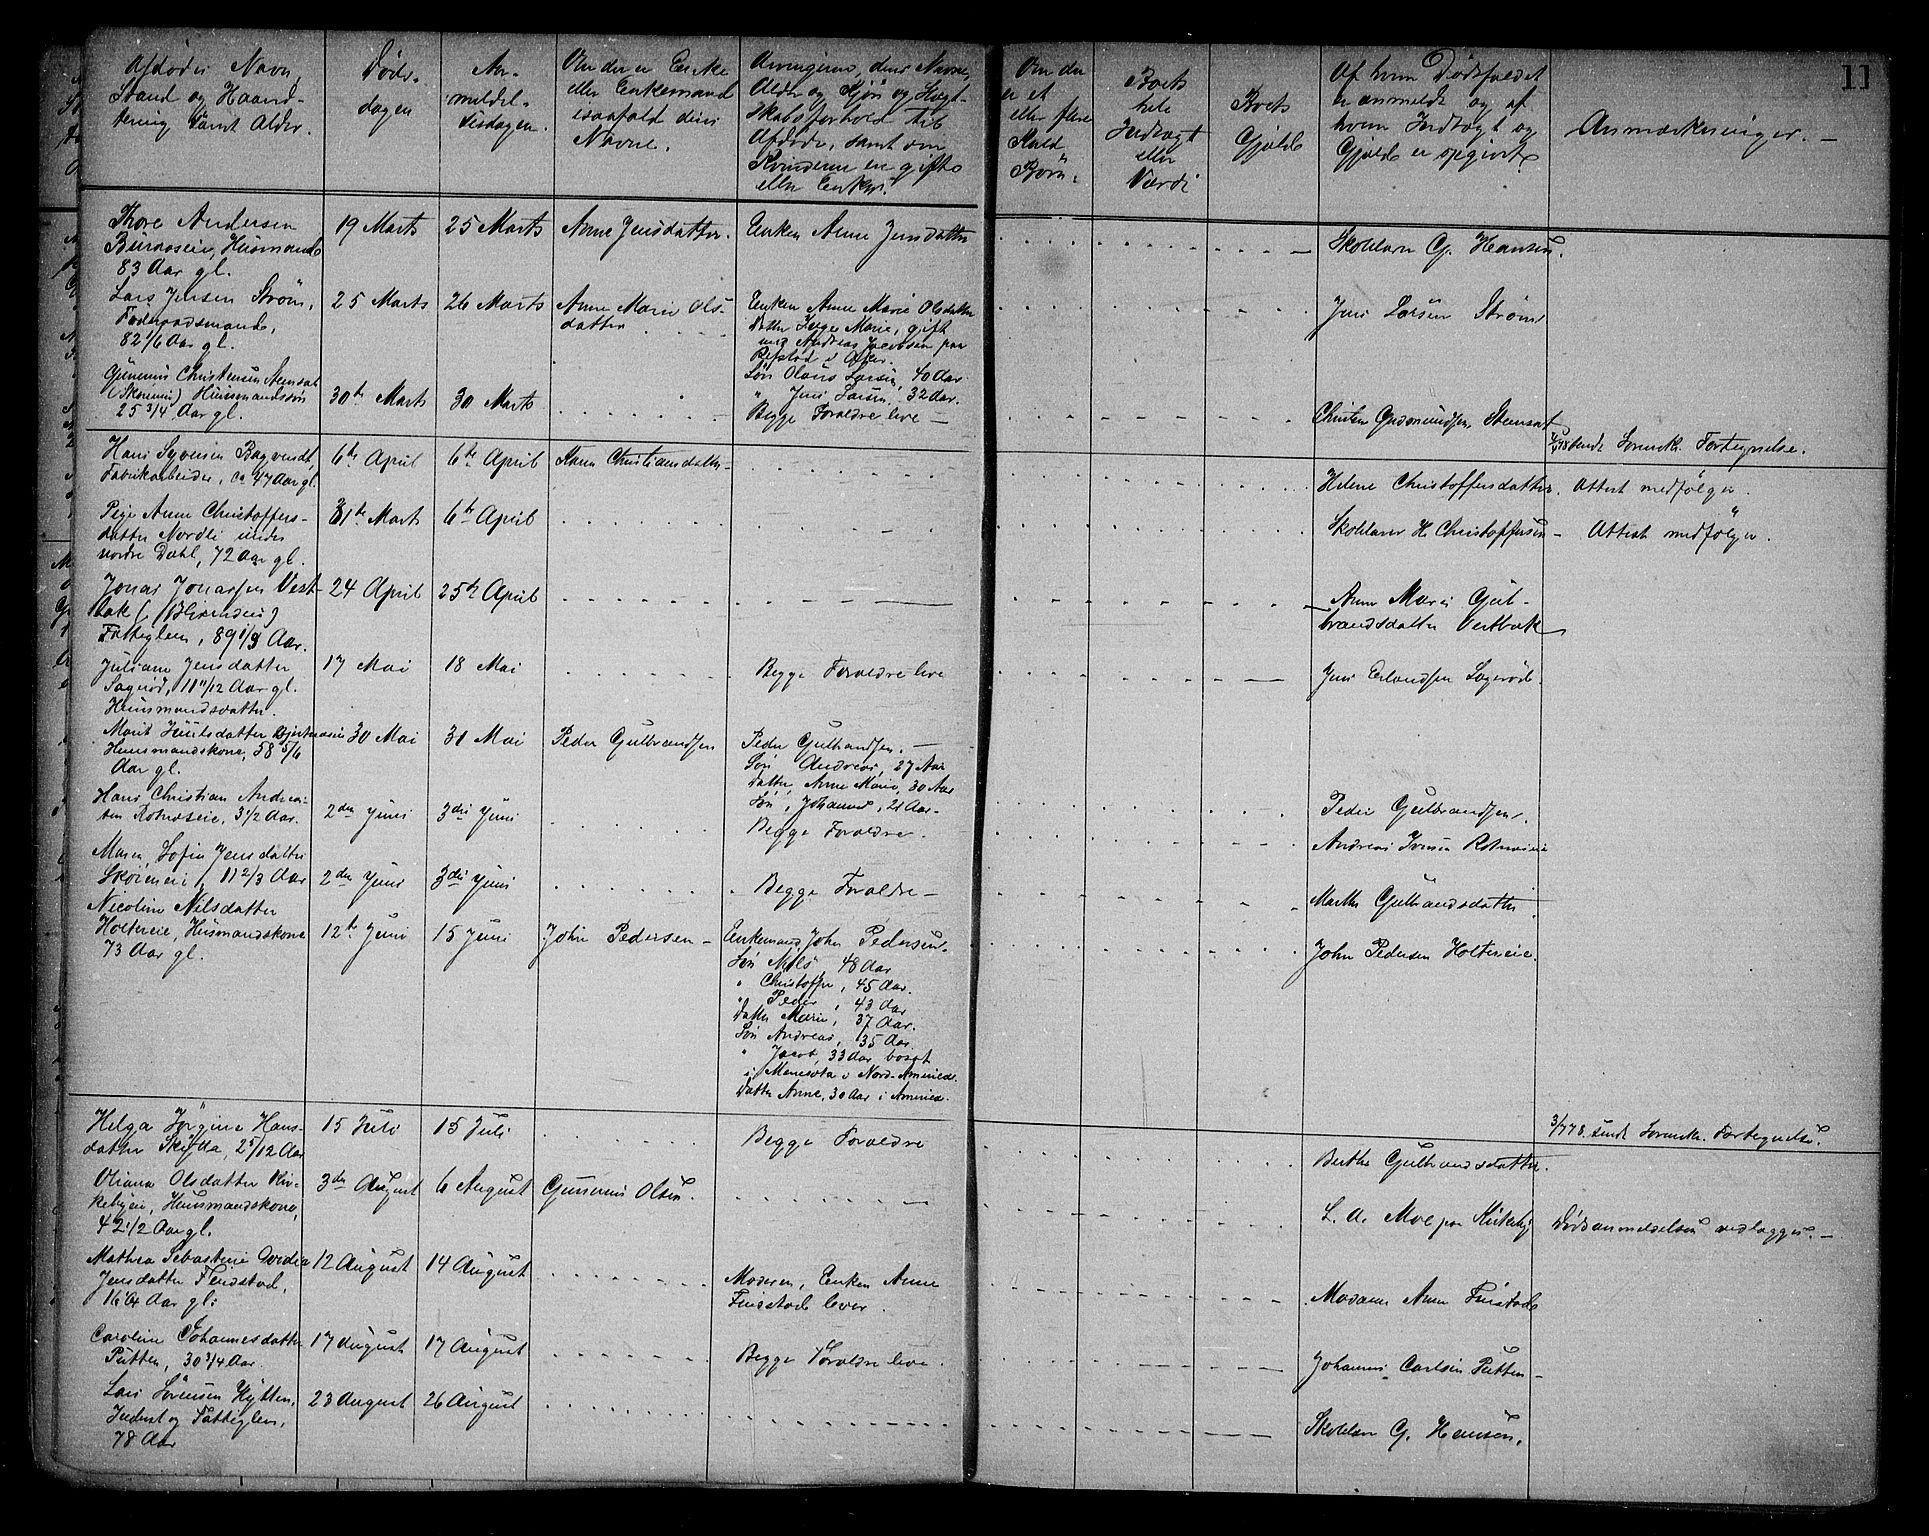 11
Afdødes Navn,
Stand og Haand-
tering samt Alder.
Døds-
dagen
An-
meldel-
sesdagen.
Om der er Enke
eller Enkemand
isaafald dens
Navne.
Arvingerne, deres Navne,
Alder og Kjøn og Slægt-
skabsforhold til
Afdøde, samt om
Kvinderne er gifte
eller Enker.
Om der
er et
eller flere
Kuld
Børn.
Boets
hele
Indtægt
eller
Værdi
Boets
Gjæld
Af hvem Dødsfaldet
er anmeldt og af
hvem Indtægt og
Gjæld er opgivet
Anmærkninger. —
Thore Andersen
Husmand
83 Aar gl.
19 Marts
25 Marts
Anne Jensdatter.
Enken Anne Jensdatter
Skolelærer G. Hansen.
Lars Jensen Strøm,
Foderaadsmand,
82 1/6 Aar gl.
25 Marts
26 Marts
Anne Marie Ols-
datter
Enken Anne Marie Olsdatter
Datter Inge Marie, gift
med Andreas Jacobsen paa
Refstad i Aker.
Søn Olaus Larsen, 40 Aar.
" Jens Larsen, 32 Aar.
Jens Larsen Strøm
Gunerius Christensen Stensat
Husmandssøn
25 3/4 Aar gl.
30te Marts
30 Marts
Begge Forældre leve —
Christen Gudmundsen Stensat
sendt Sorenskr. Fortegnelse.
Hans Syversen Bagvendt,
Fabrikarbeider, ca 47 Aar gl.
6te April
6te April
Karen Christiansdatter
Helene Christoffersdatter.
Attest medfølger.
Pige Anne Christoffers-
datter Nordli under
nordre Dahl, 72 Aar gl.
31te Marts
6te April
Skolelærer H. Christoffersen —
Attest medfølger.
Jonas Jonassen Vest-
bak
Fattiglem, 89 1/3 Aar.
24 April
25de April
Anne Marie Gul-
brandsdatter Vestbak
Juliane Jensdatter
Sagerød, 11 11/12 Aar gl.
Husmandsdatter.
17 Mai
18 Mai
Begge Forældre leve
Jens Erlandsen Sagerød.
Marit Knutsdatter
Husmandskone, 58 5/6
Aar gl.
30 Mai
31 Mai
Peder Gulbrandsen
Peder Gulbrandsen. —
Søn Andreas, 27 Aar
Datter, Anne Marie, 30 Aar
Søn, Johannes, 21 Aar.
Peder Gulbrandsen.
Hans Christian Andrea-
sen Rotnæseie, 3 1/2 Aar.
2den Juni
3die Juni
Begge Forældre.
Andreas Iversen Rotnæseie
Maren Sofie Jensdatter
Skøieneie, 11 2/3 Aar
2den Juni
3die Juni
Begge Forældre —
Marthe Gulbrandsdatter
Nicoline Nilsdatter
Holtereie, Husmandskone
73 Aar gl.
12te Juni
15 Juni
John Pedersen —
Enkemand, John Pedersen.
Søn Nils 48 Aar
" Christoffer, 45 Aar.
" Peder, 43 Aar
Datter Marie, 37 Aar.
Søn Andreas, 35 Aar.
" Jacob, 33 Aar bosat
i Menesota i Nord-Amerika.
Datter Anne, 30 Aar i Amerika.
John Pedersen Holtereie.
3/7 78. sendt Sorenskr. Fortegnelse.
Helga Jørgine Hans-
datter 2 5/12 Aar
15 Juli
15 Juli
Begge Forældre
Berthe Gulbrandsdatter.
Oliana Olsdatter Kir-
kebyeie, Husmandskone,
42 1/2 Aar gl.
3die August
6 August
Gunerius Olsen.
L. A. Moe paa Kirkeby
Dødsanmeldelsen vedlægges. —
Mathea Sebastine Dordia
Jensdatter Finstad,
16 Aar gl.
12 August
14 August
Moderen, Enken Anne
Finstad lever.
Madame Anne Finstad
Caroline Johannesdatter
Putten, 30 3/4 Aar.
17 August
17 August
Begge Forældre leve.
Johannes Carlsen Putten —
Lars Sørensen Hytten,
Inderst og Fattiglem,
78 Aar
23 August
26 August
Skolelærer G. Hansen.